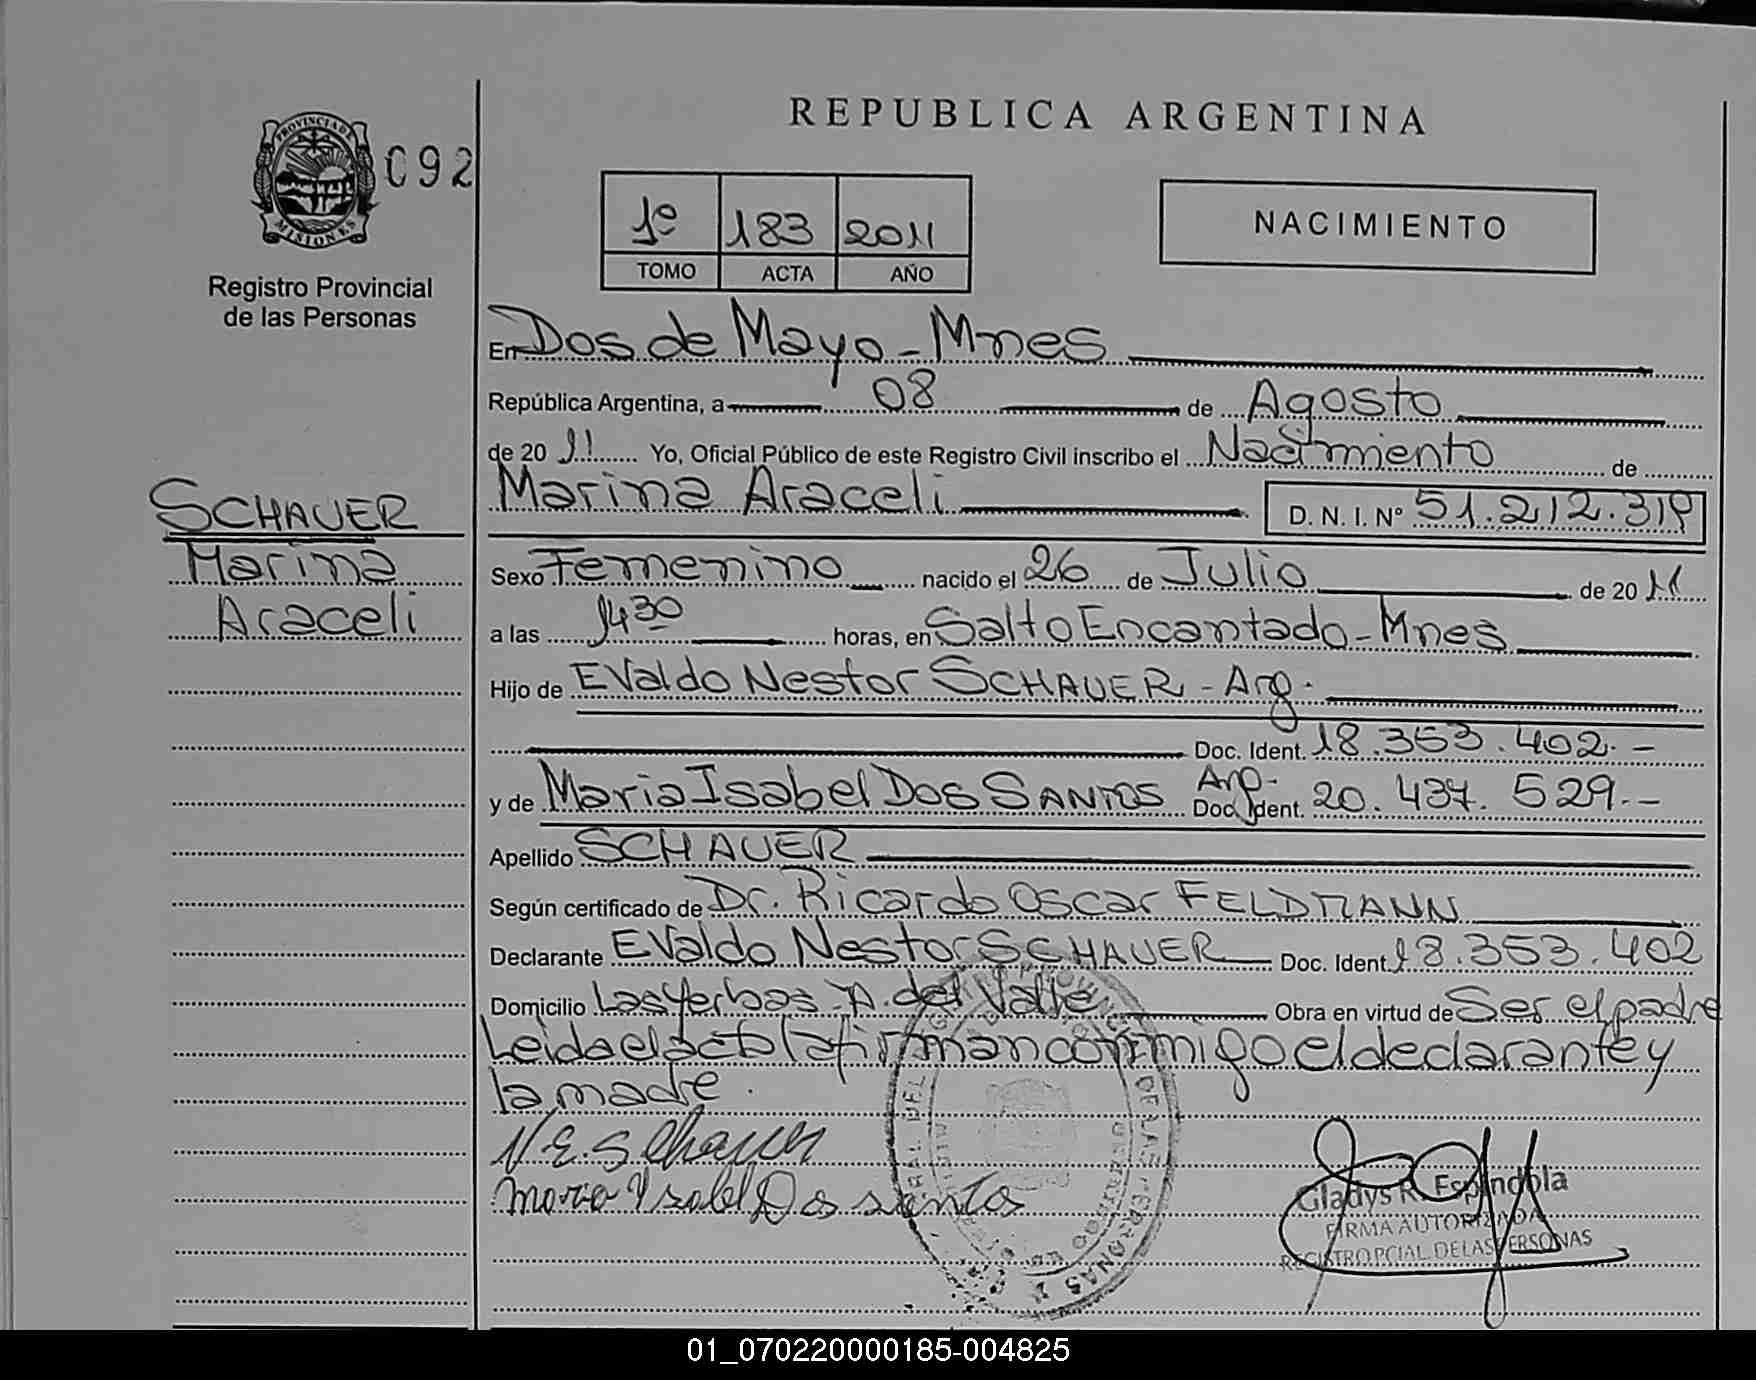 REPUBLICA ARGENTINA
PROVINCIA DE
MISIONES
092
Registro Provincial
de las Personas
1º 183 2011
TOMO ACTA AÑO
NACIMIENTO
En Dos de Mayo - Mnes
República Argentina, a 08 de Agosto
de 20 11 Yo, Oficial Público de este Registro Civil inscribo el Nacimiento de
Marina Araceli D. N. I. Nº 51.212.319
SCHAUER
Marina
Araceli
Sexo Femenino nacido el 26 de Julio de 20 11
a las 14 30 horas, en Salto Encantado - Mnes
Hijo de Evaldo Nestor SCHAUER - Arg.
Doc. Ident. 18.353.402.-
y de Maria Isabel DOS SANTOS Arg- Doc. Ident. 20.437.529.-
Apellido SCHAUER
Según certificado de Dr. Ricardo Oscar FELDMANN
Declarante Evaldo Nestor SCHAUER Doc. Ident. 18.353.402
Domicilio Las Yerbas - A. del Valle Obra en virtud de Ser el padre
Leida el acta la firman conmigo el declarante y
la madre.
N. E. Schauer
Maria Ysabel Dos santos
Gladys R. Espindola
FIRMA AUTORIZADA
REGISTRO PCIAL. DE LAS PERSONAS
01_070220000185-004825